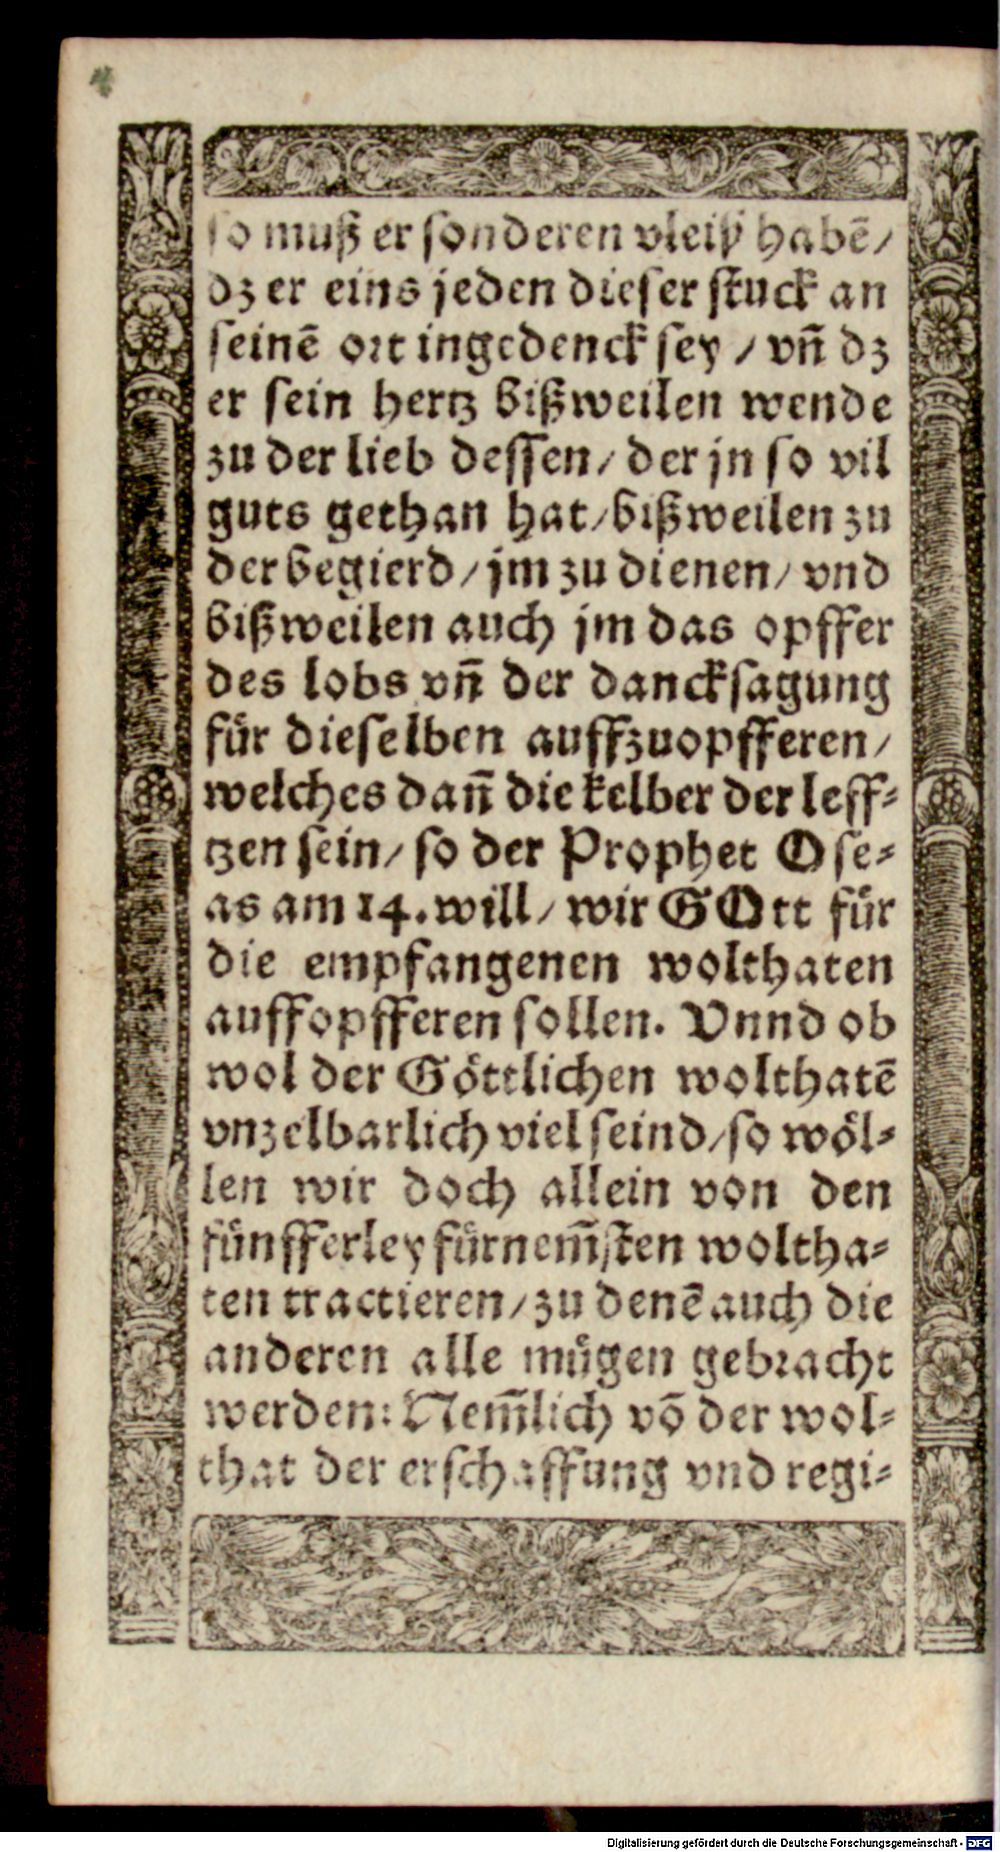 so muß er sonderen vleiß habẽ/
dz er eins jeden dieser stuck an
seinẽ ort ingedenck sey / vñ dz
er sein hertz bißweilen wende
zu der lieb dessen/ der jn so vil
guts gethan hat/bißweilen zu
der begierd/ jm zu dienen/ vnd
bißweilen auch jm das opffer
des lobs vñ der dancksagung
für dieselben auffzuopfferen/
welches dañ die kelber der leff-
tzen sein/ so der Prophet Ose-
as am 14. will/ wir GOtt für
die empfangenen wolthaten
auffopfferen sollen. Vnnd ob
wol der Göttlichen wolthatẽ
vnzelbarlich viel seind/so wöl-
len wir doch allein von den
fünfferley fürnem̃sten woltha-
ten tractieren/ zu denẽ auch die
anderen alle mügen gebracht
werden: Nem̃lich võ der wol-
that der erschaffung vnd regi-
Digitalisierung gefördert durch die Deutsche Forschungsgemeinschaft - DFG